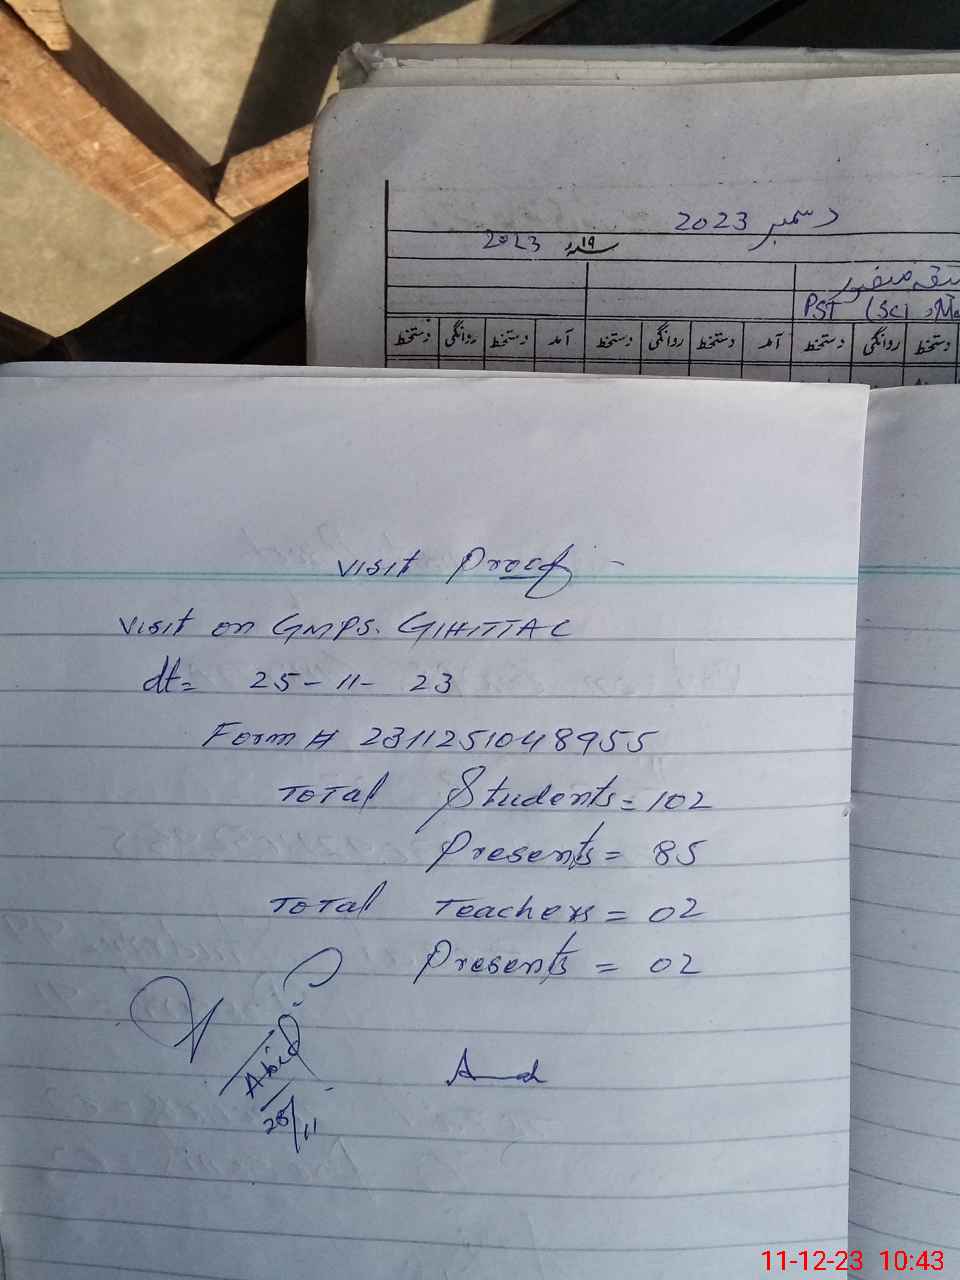 دسمبر 2023
2023 ۱۹
PST (SCI
دستخط روانگی دستخط آمد دستخط روانگی دستخط آمد دستخط روانگی دستخط
visit Proof
visit on GMPS. GIHITTAL
dt= 25-11-23
Form # 2311251048955
Total Students = 102
Presents = 85
Total Teachers = 02
Presents = 02
Abid
11-12-23 10:43